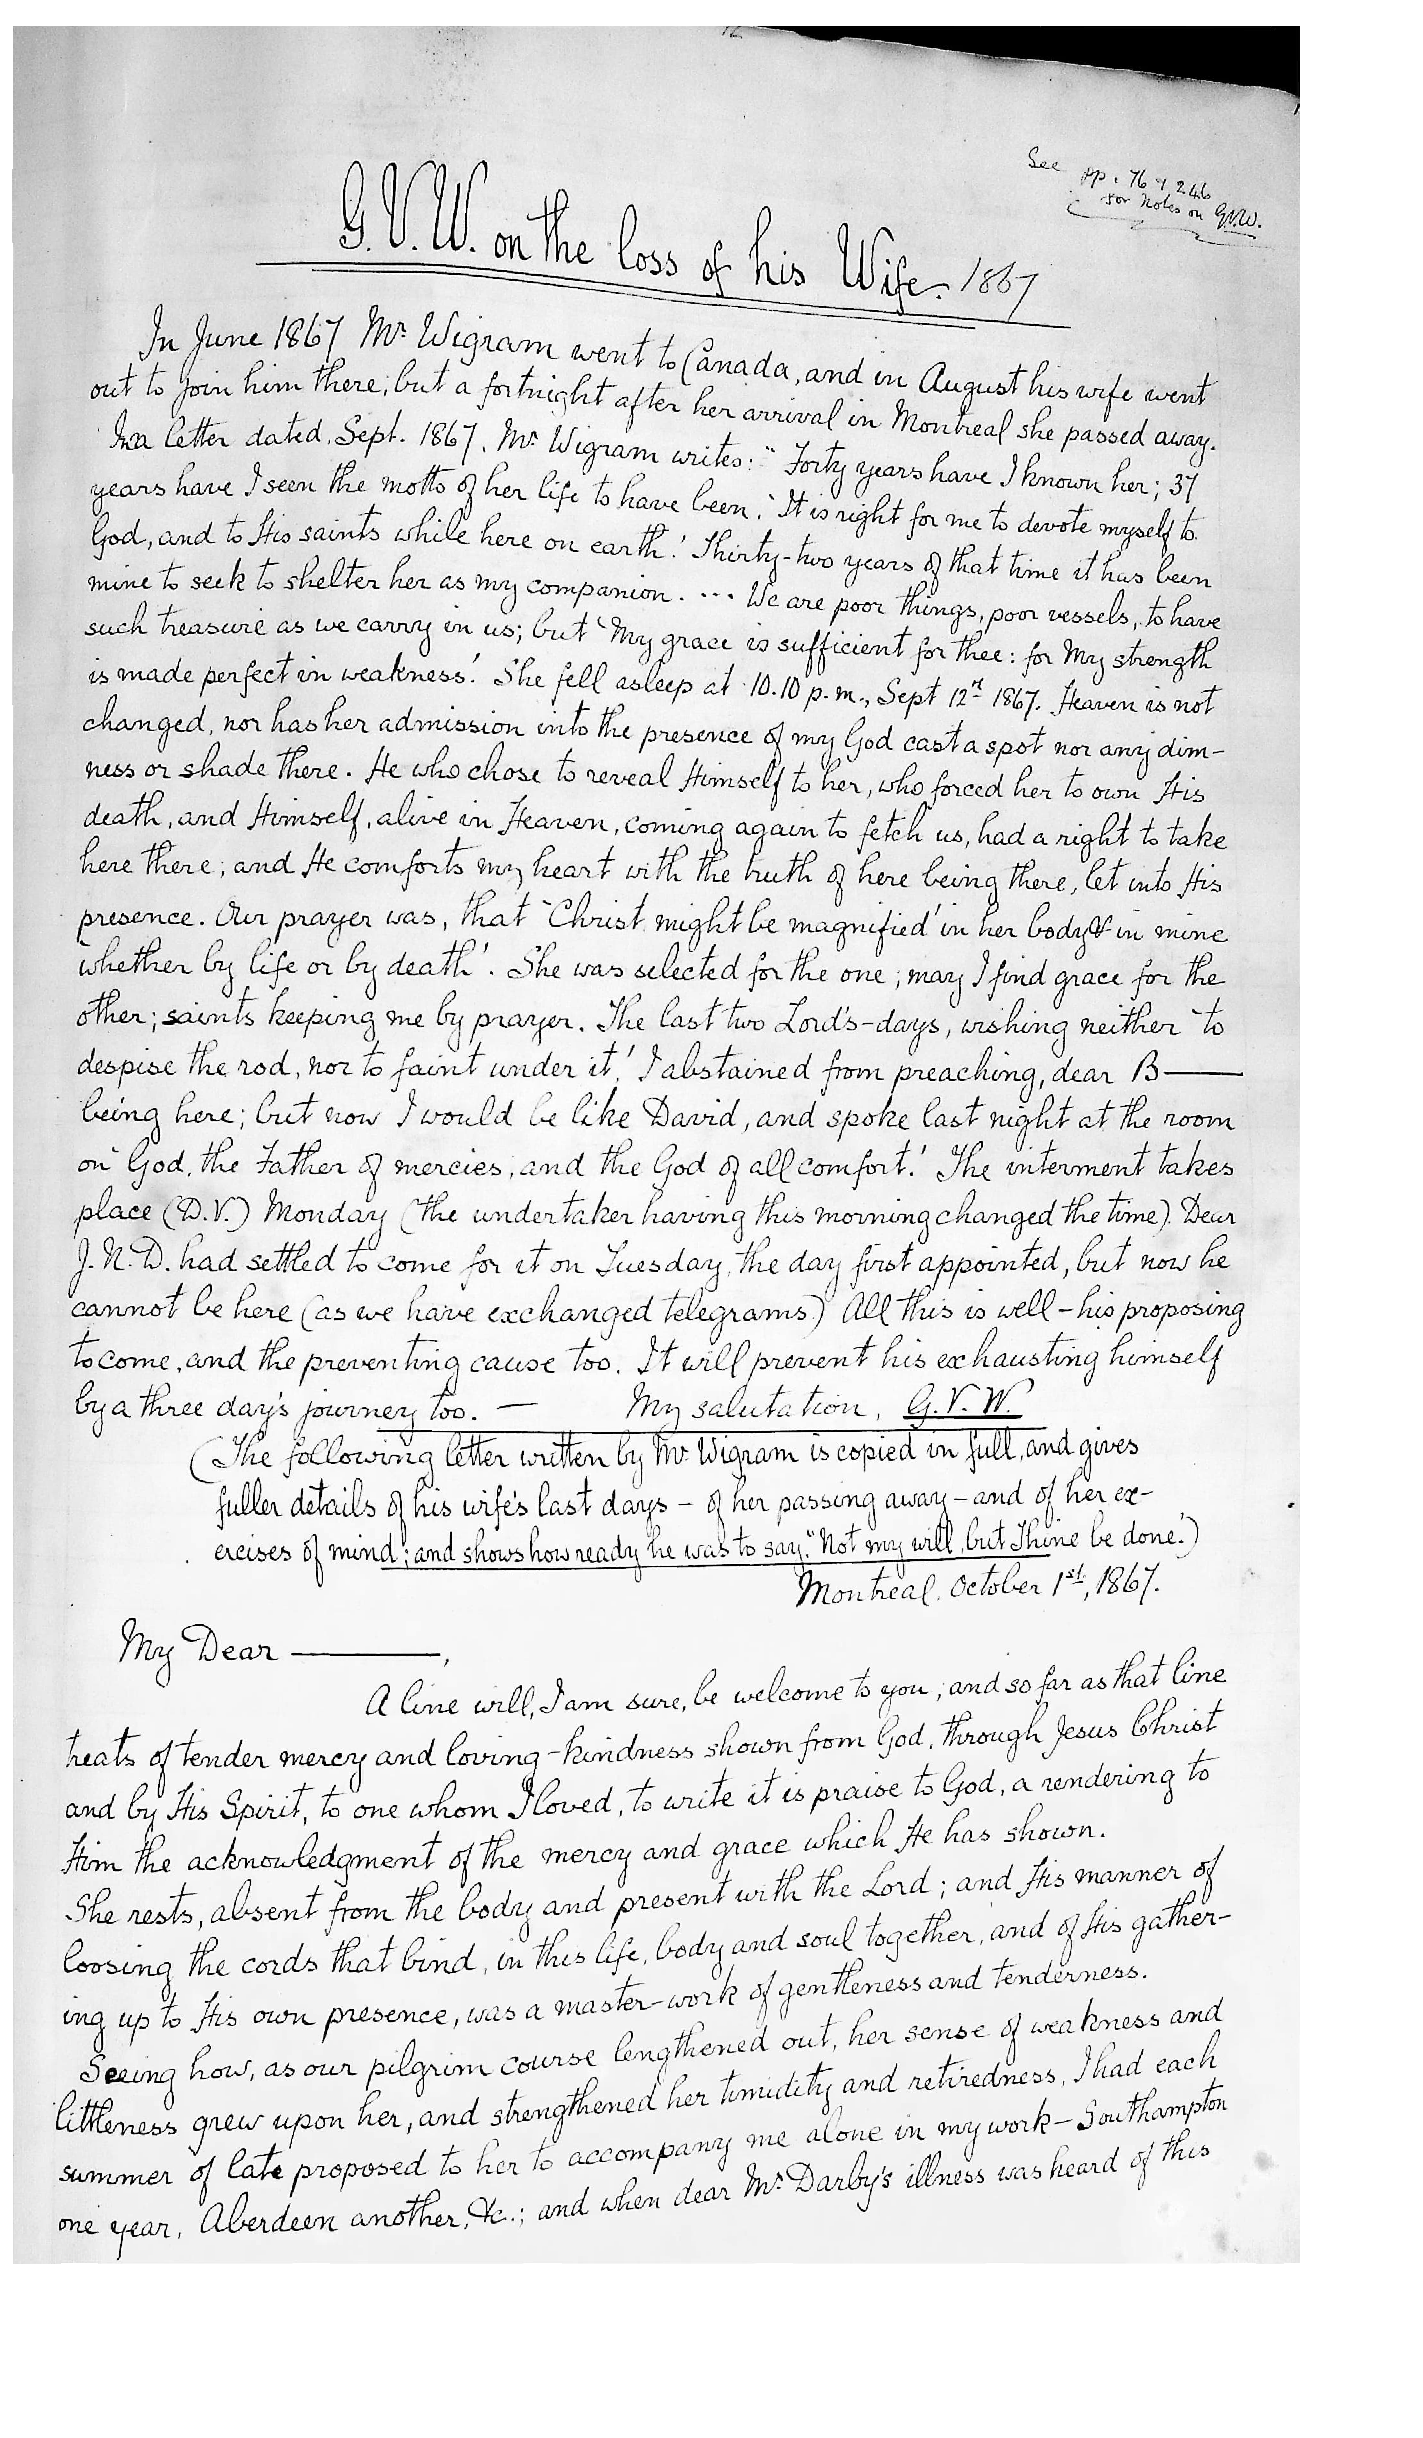 See pp. 76 & 246
for Notes on G.V.W.
G.V.W. on the loss of his Wife. 1867
In June 1867 Mr. Wigram went to Canada, and in August his wife went
out to join him there; but a fortnight after her arrival in Montreal she passed away.
In a letter dated, Sept. 1867, Mr. Wigram writes: "Forty years have I known her; 37
years have I seen the motto of her life to have been, 'It is right for me to devote myself to
God, and to His saints while here on earth.' Thirty-two years of that time it has been
mine to seek to shelter her as my companion. ... We are poor things, poor vessels, to have
such treasure as we carry in us; but 'My grace is sufficient for thee: for My strength
is made perfect in weakness.' She fell asleep at 10.10 p.m., Sept 12th 1867. Heaven is not
changed, nor has her admission into the presence of my God cast a spot nor any dim-
ness or shade there. He who chose to reveal Himself to her, who forced her to own His
death, and Himself, alive in Heaven, coming again to fetch us, had a right to take
here there; and He comforts my heart with the truth of here being there, let into His
presence. Our prayer was, that 'Christ might be magnified' in her body & in mine
'whether by life or by death'. She was selected for the one; may I find grace for the
other; saints keeping me by prayer. The last two Lord's-days, wishing neither 'to
despise the rod, nor to faint under it,' I abstained from preaching, dear B——
being here; but now I would be like David, and spoke last night at the room
on 'God, the Father of mercies, and the God of all comfort.' The interment takes
place (D.V.) Monday (the undertaker having this morning changed the time). Dear
J.N.D. had settled to come for it on Tuesday, the day first appointed, but now he
cannot be here (as we have exchanged telegrams.) All this is well - his proposing
to come, and the preventing cause too. It will prevent his exhausting himself
by a three day's journey too. — My salutation, G.V.W.
(The following letter written by Mr. Wigram is copied in full, and gives
fuller details of his wife's last days - of her passing away - and of her ex-
ercises of mind; and shows how ready he was to say, "Not my will, but Thine be done.')
Montreal, October 1st, 1867.
My Dear ————,
A line will, I am sure, be welcome to you; and so far as that line
treats of tender mercy and loving-kindness shown from God, through Jesus Christ
and by His Spirit, to one whom I loved, to write it is praise to God, a rendering to
Him the acknowledgment of the mercy and grace which He has shown.
She rests, absent from the body and present with the Lord; and His manner of
loosing the cords that bind, in this life, body and soul together, and of His gather-
ing up to His own presence, was a master-work of gentleness and tenderness.
Seeing how, as our pilgrim course lengthened out, her sense of weakness and
littleness grew upon her, and strengthened her timidity and retiredness, I had each
summer of late proposed to her to accompany me alone in my work - Southampton
one year, Aberdeen another, &c.; and when dear Mr. Darby's illness was heard of this